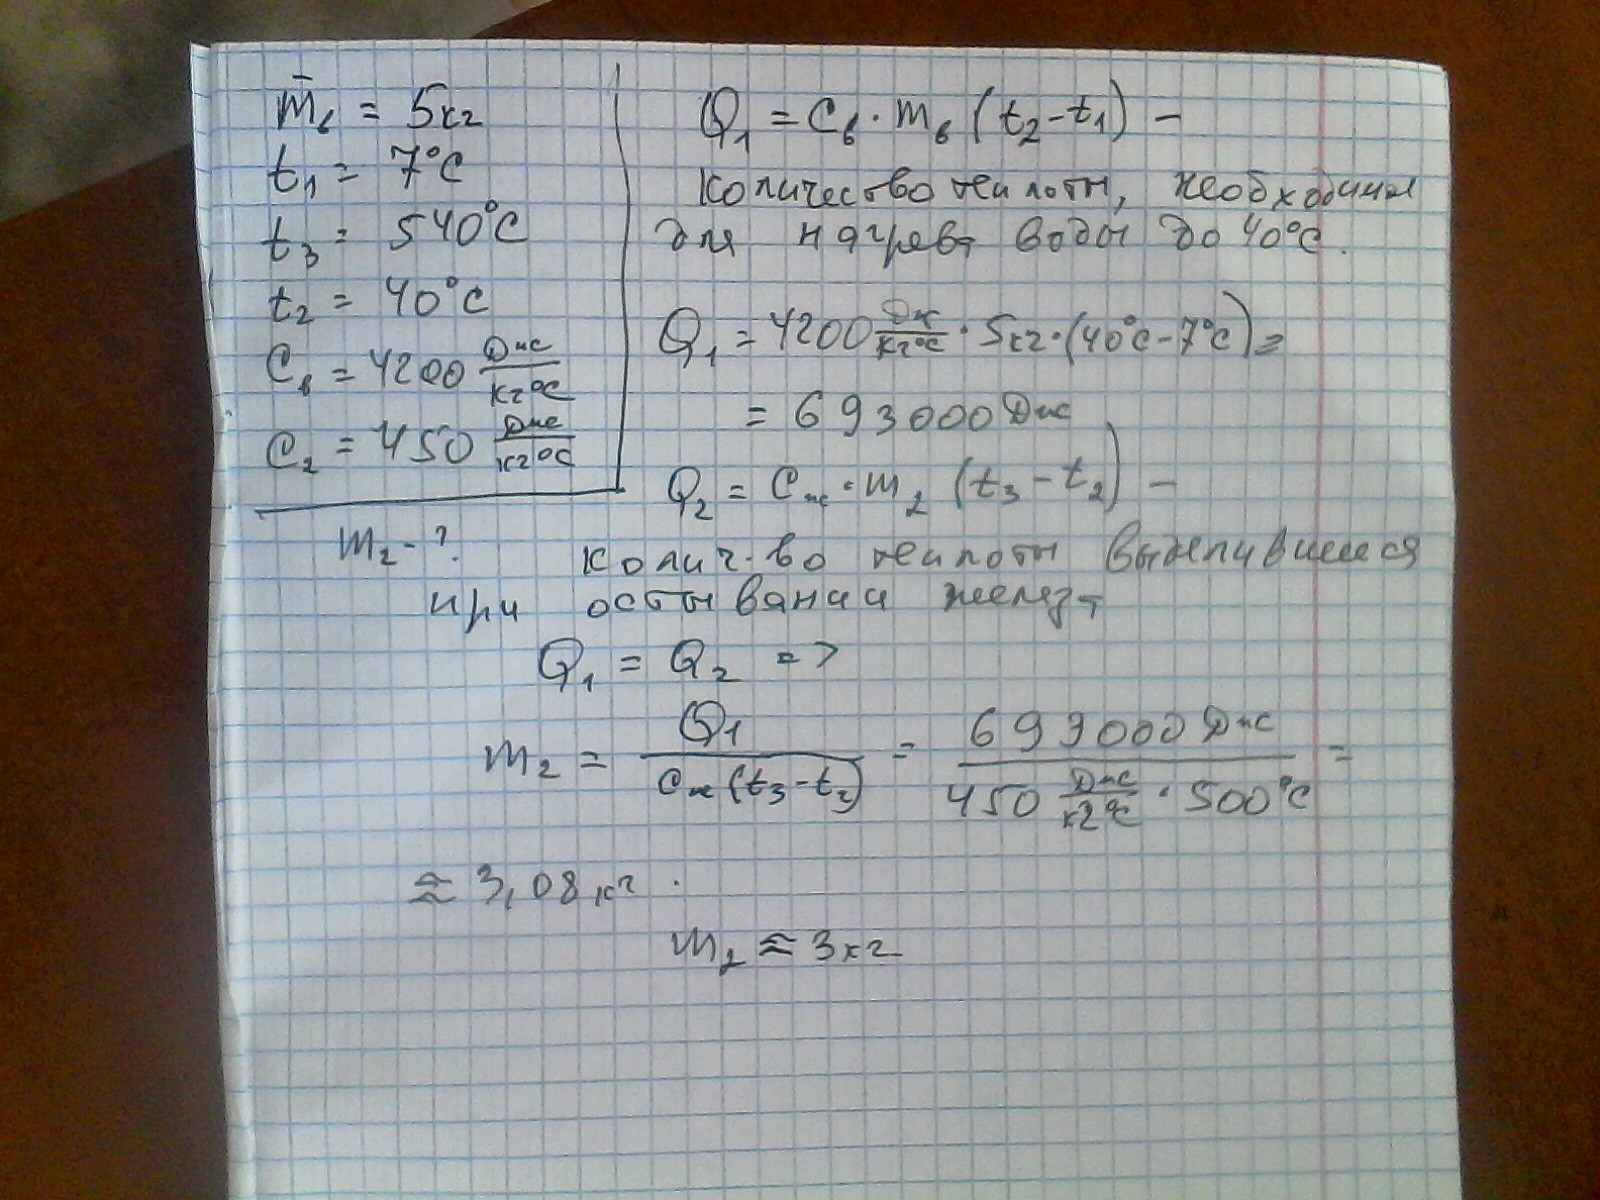 m̄в = 5кг
t₁ = 7°C
t₃ = 540°C
t₂ = 40°C
Cв = 4200 Дж/кг°C
C₂ = 450 Дж/кг°C
m₂ - ?
Q₁ = Cв · mв (t₂ - t₁) –
количество теплоты, необходимы
для нагрева воды до 40°C.
Q₁ = 4200 Дж/кг°C · 5кг · (40°C - 7°C) =
= 693000 Дж
Q₂ = Cж · m₂ (t₃ - t₂) –
колич-во теплоты выделившееся
при остывании железа
Q₁ = Q₂ =>
m₂ = Q₁ / Cж (t₃ - t₂) = 693000 Дж / 450 Дж/кг°C · 500°C =
≈ 3,08 кг.
m₂ ≈ 3кг